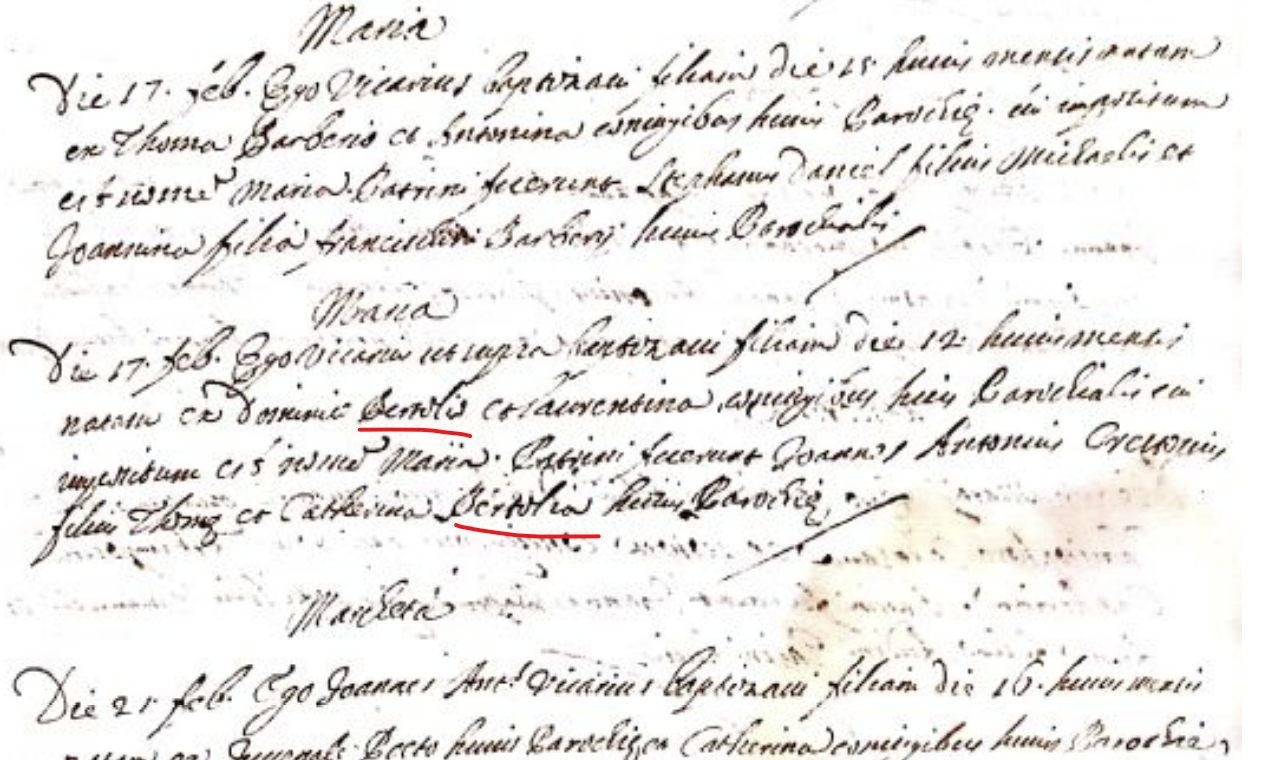 Maria
Die 17. feb. Ego Vicarius baptizavi filiam die 15 huius mensis natam
ex Thoma Barberis et Antonina coniugibus huius Parochię. cui impositum
est nomen Maria. Patrini fuerunt Stephanus Daniel filius Michaelis et
Joannina filia Barberij huius Parochialis
Maria
Die 17. feb. Ego Vicarius ut supra baptizavi filiam die 12. huius mensis
natam ex Dominico Bertolis et Laurentina coniugibus huius Parochialis cui
impositum est nomen Maria. Patrini fuerunt Joannes Antonius
filius Thomę et Catherina Bertolia huius Parochię.
Marcheta
Die 21. feb. Ego Joannes Ant.s Vicarius baptizavi filiam die 16. huius mensis
natam ex Juvenale Becto huius Parochię et Catherina coniugibus huius Parochię,